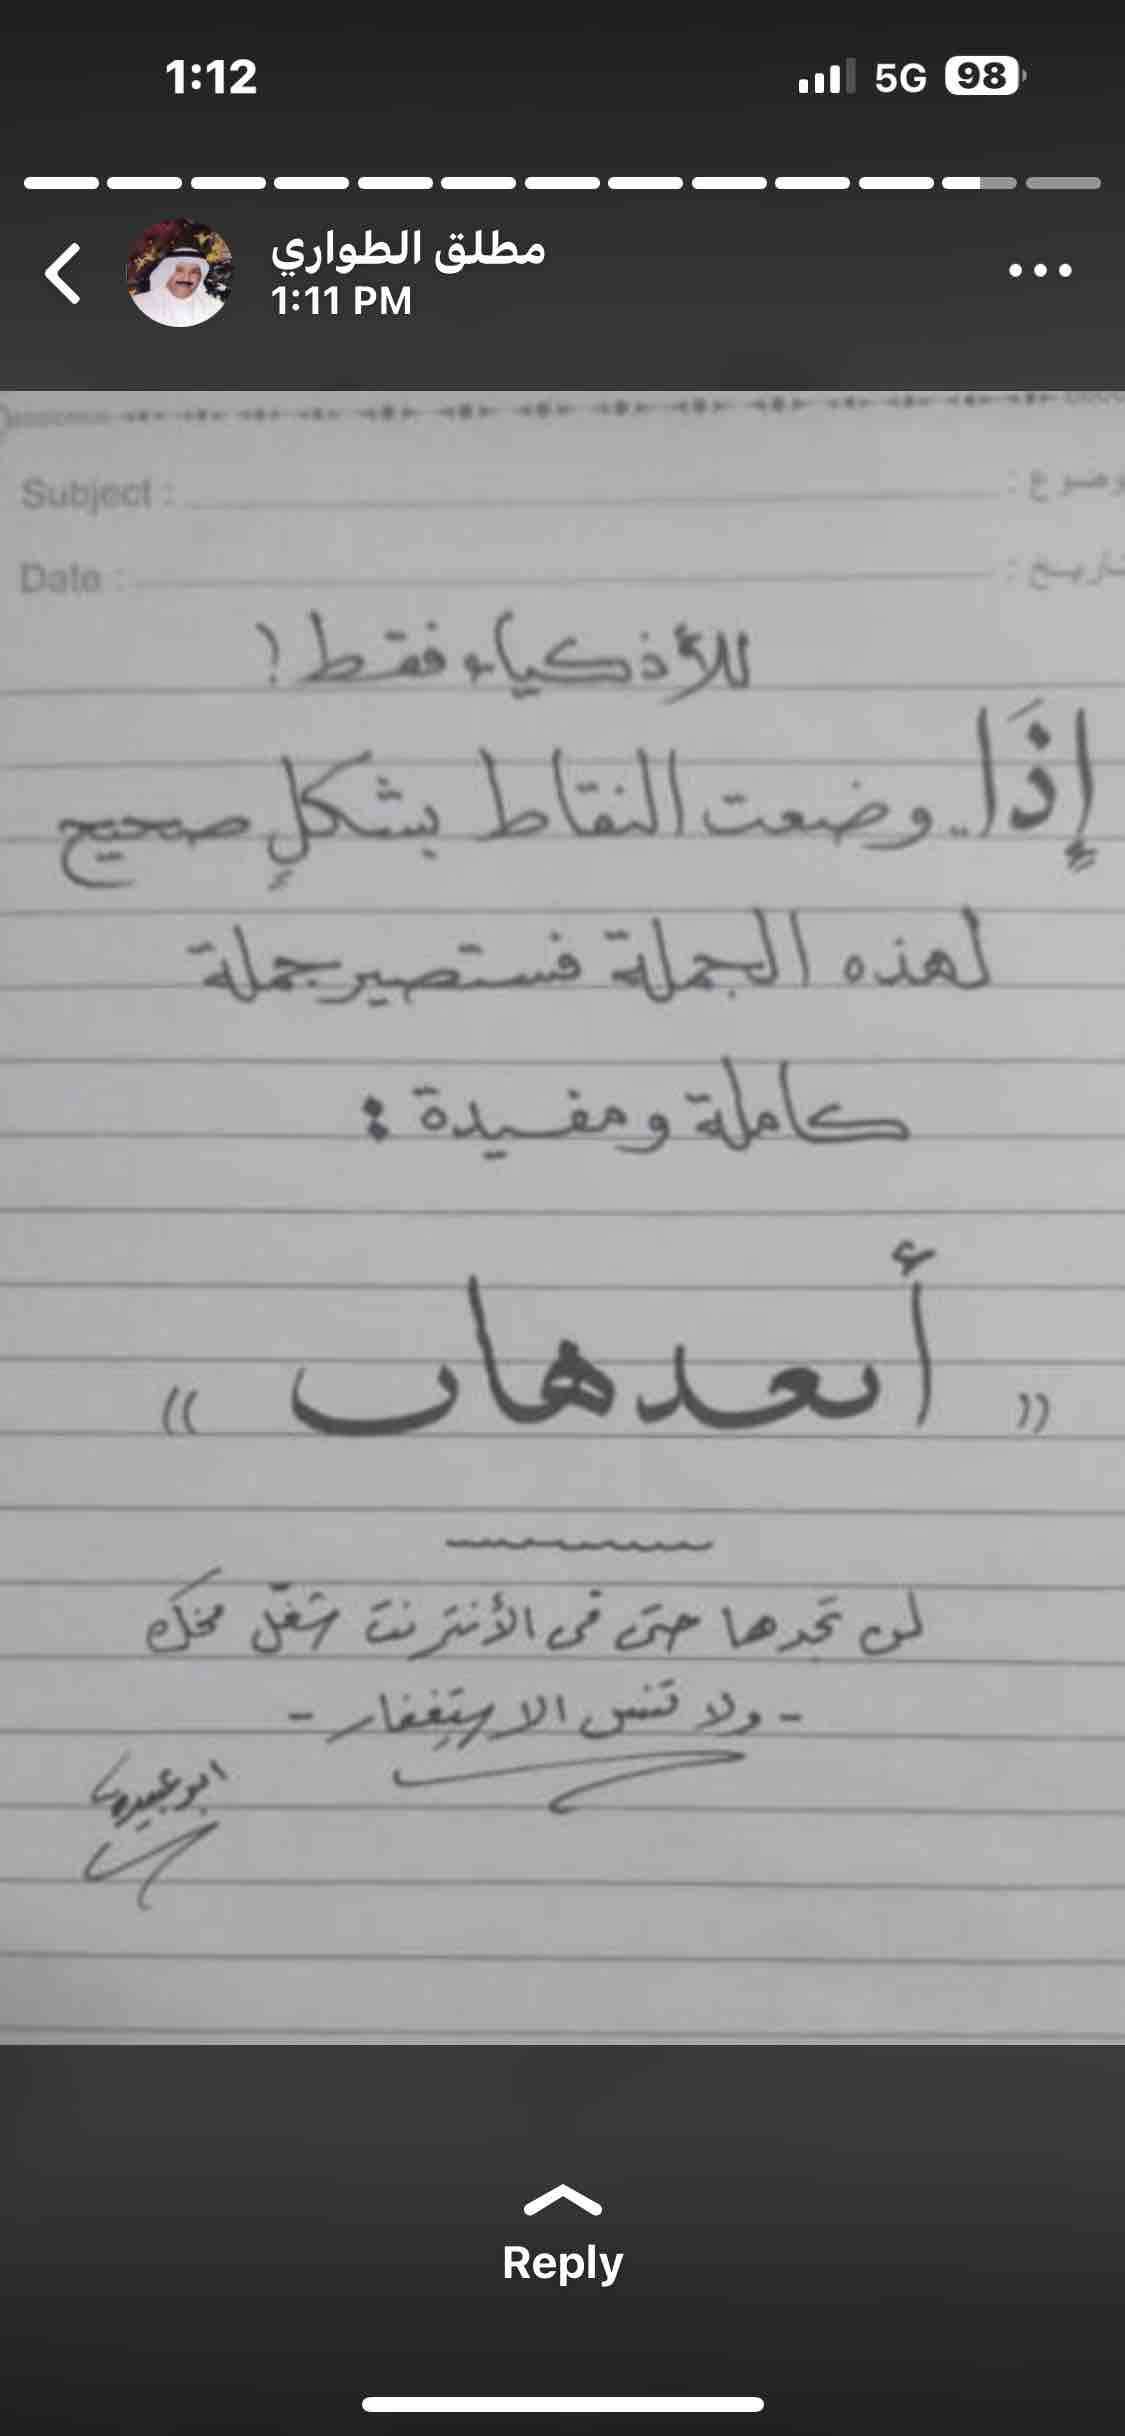 1:12
5G 98
مطلق الطواري
1:11 PM
Subject :
وضوع :
Date :
تاريخ :
للأذكياء فقط !
إِذَا .. وضعت النقاط بشكلٍ صحيح
لهذه الجملة فستصير جملة
كاملة ومفيدة :
(( أٮعدهاٮ ))
لن تجدها حتى في الأنترنت شغّل مخك
- ولا تنس الاستغفار -
ابو عبيدة
Reply